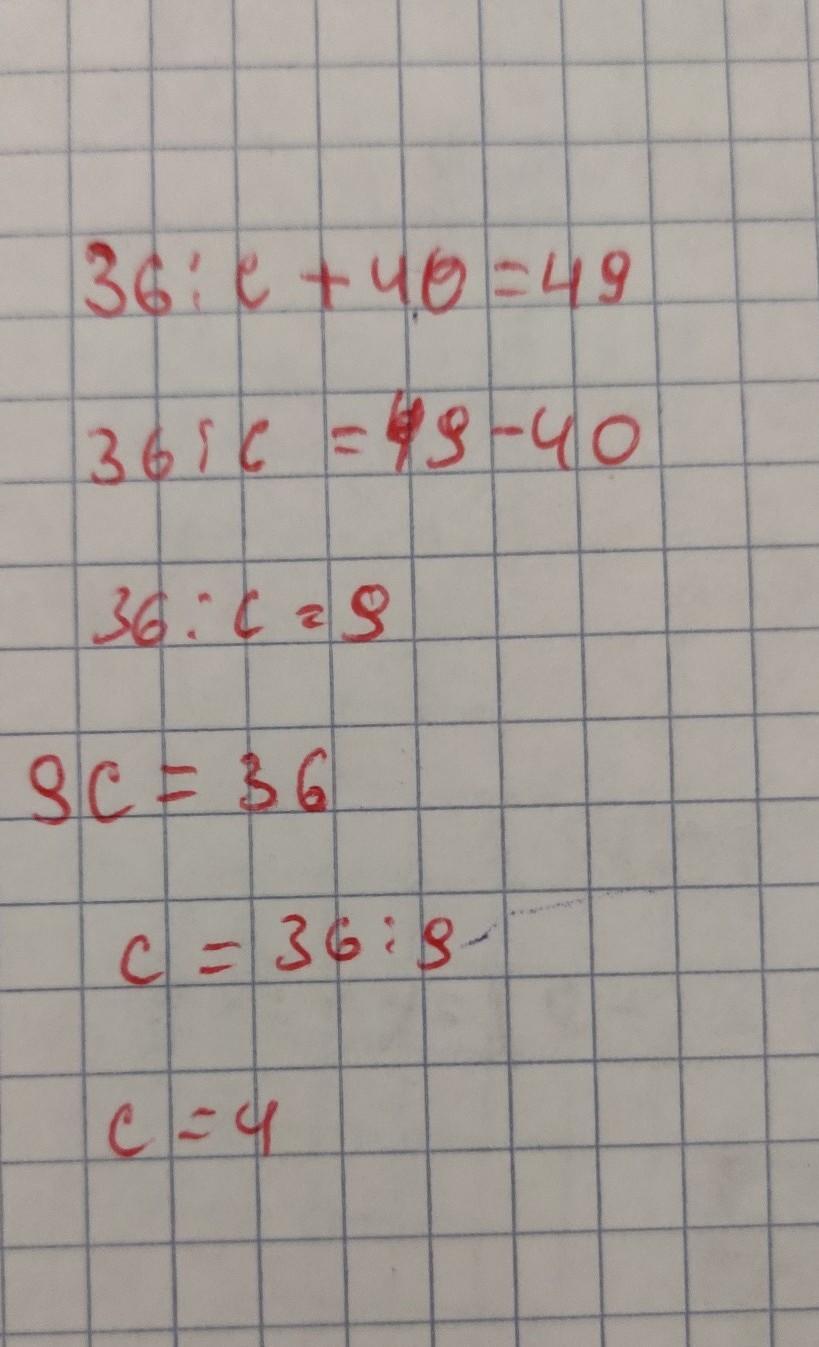 36 : c + 40 = 49
36 : c = 49 - 40
36 : c = 9
9c = 36
c = 36 : 9
c = 4